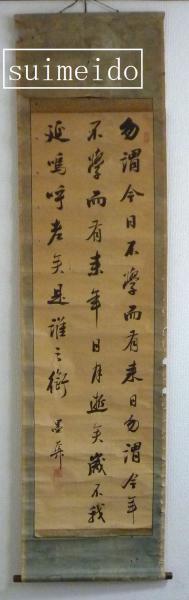 suimeido
勿謂今日不學而有来日勿謂今年
不學而有来年日月逝矣歳不我
延嗚呼老矣是誰之愆